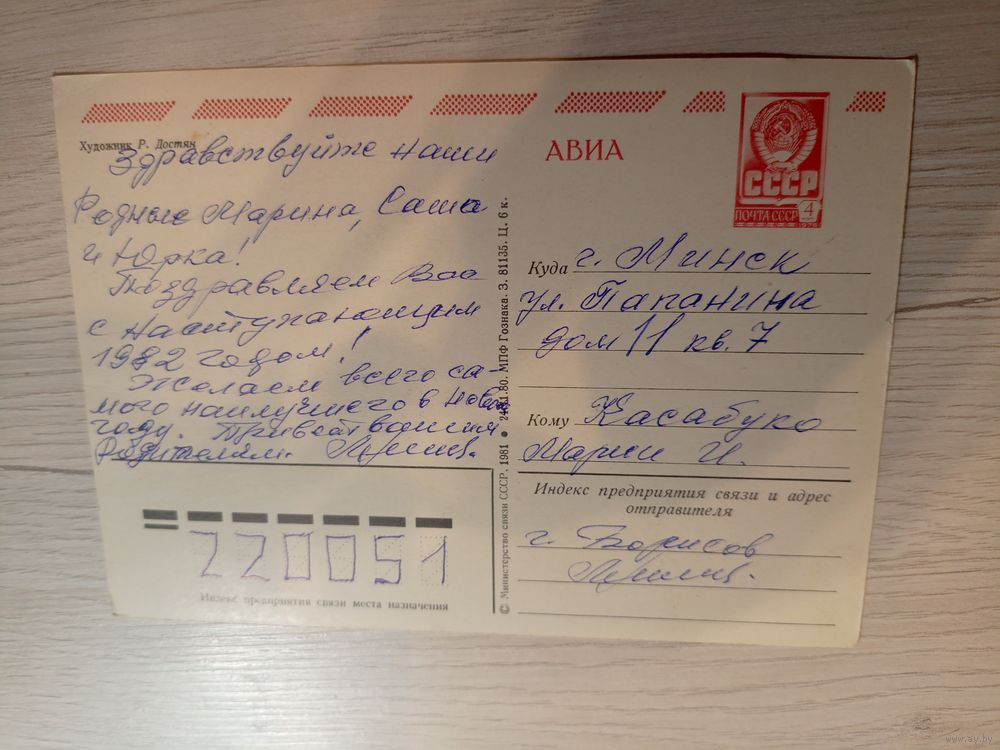 Художник Р. Достян
Здравствуйте наши
Родные Марина, Саша
и Юрка!
Поздравляем Вас
с наступающим
1982 годом!
Желаем всего са-
мого наилучшего в Новом
году. Привет вашим
Родителям.
220051
Индекс предприятия связи места назначения
© Министерство связи СССР, 1981 • 24.11.80. МПФ Гознака. З. 81135. Ц. 6 к.
АВИА
СССР
ПОЧТА СССР 4
1976
Куда г. Минск
ул. Папанина
дом 11 кв. 7
Кому Касабуко
Марии И.
Индекс предприятия связи и адрес
отправителя
г. Борисов
www.ay.by